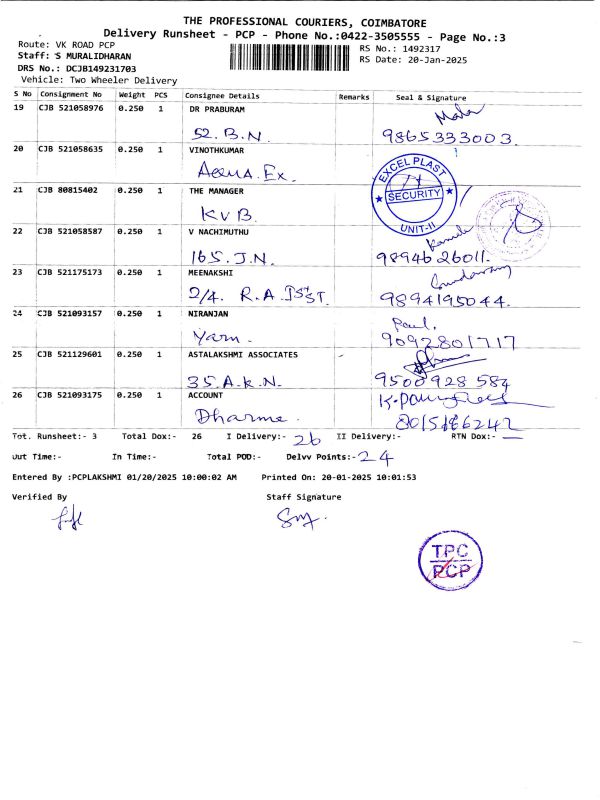 THE PROFESSIONAL COURIERS, COIMBATORE
Delivery Runsheet - PCP - Phone No.:0422-3505555 - Page No.:3
Route: VK ROAD PCP RS No.: 1492317
Staff: S MURALIDHARAN RS Date: 20-Jan-2025
DRS No.: DCJB149231703
Vehicle: Two Wheeler Delivery
S No Consignment No Weight PCS Consignee Details Remarks Seal & Signature
19 CJB 521058976 0.250 1 DR PRABURAM Mala
52. B.N. 9865333003.
20 CJB 521058635 0.250 1 VINOTHKUMAR
Aqua. Ex. EXCEL PLAST
SECURITY
UNIT-II
21 CJB 80815402 0.250 1 THE MANAGER
KVB.
22 CJB 521058587 0.250 1 V NACHIMUTHU
165. J.N. 9894626011.
23 CJB 521175173 0.250 1 MEENAKSHI
2/4. R.A. Ist ST. 9894195044.
24 CJB 521093157 0.250 1 NIRANJAN Paul.
Yarn. 9092801717
25 CJB 521129601 0.250 1 ASTALAKSHMI ASSOCIATES -
35. A.K.N. 9500928584
26 CJB 521093175 0.250 1 ACCOUNT
Dharme. 8015186242
Tot. Runsheet:- 3 Total Dox:- 26 I Delivery:- 26 II Delivery:- RTN Dox:- —
Out Time:- In Time:- Total POD:- Delvv Points:- 24
Entered By :PCPLAKSHMI 01/20/2025 10:00:02 AM Printed On: 20-01-2025 10:01:53
Verified By Staff Signature
TPC
PCP